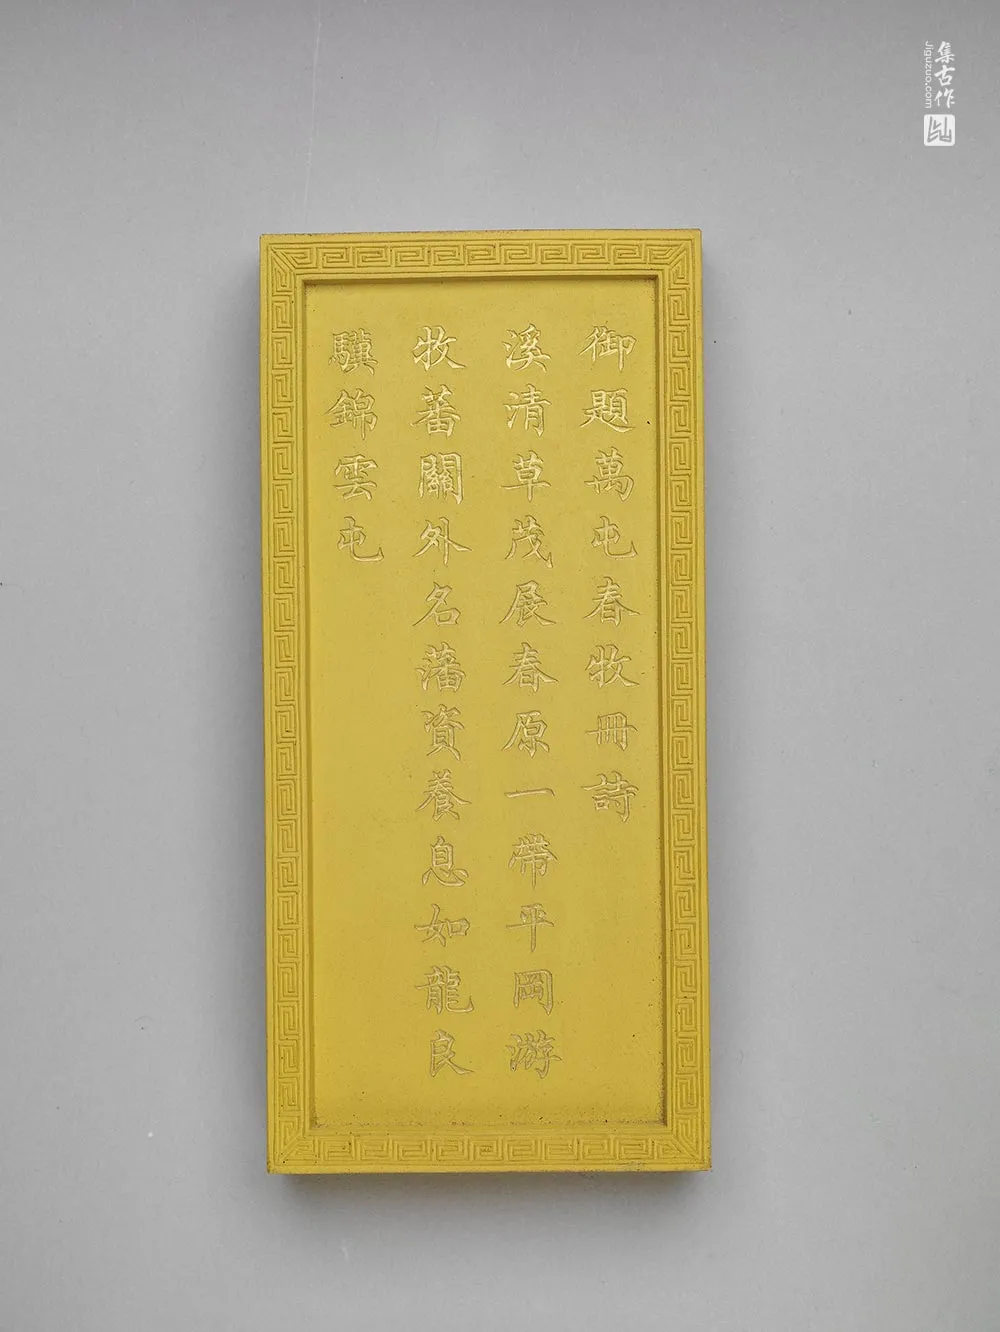 御題萬屯春牧冊詩
溪清草茂展春原一帶平岡游
牧蕃關外名藩資養息如龍良
驥錦雲屯
集古作
Jiguzuo.com